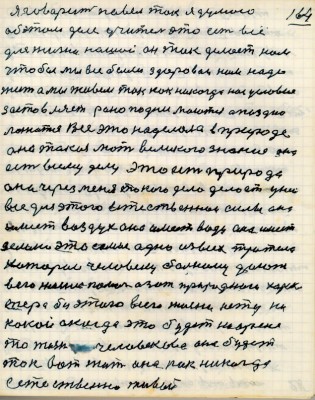 164
Я говорит павел так я думаю
об этом деле учител это ест всё
для жизни нашей он так делает нам
чтобы мы все были здоровая нам надо
жит а мы живём так как никогда нас условие
заставляет рано подниматся а поздно
ложится Все это наделала в природе
она такая мат великого знание она
ест всему делу Это ест природа
она через меня такого дело делает у ней
все для этого естественная сила она
имеет воздух она имеет вода она имеет
землю это самые одно из всех
которая человеку больному делает
его
сфера без этого всего жизни нету ни
какой а когда это будет
то жизн человекова она будет
так вот жит она как никогда
естественно живой